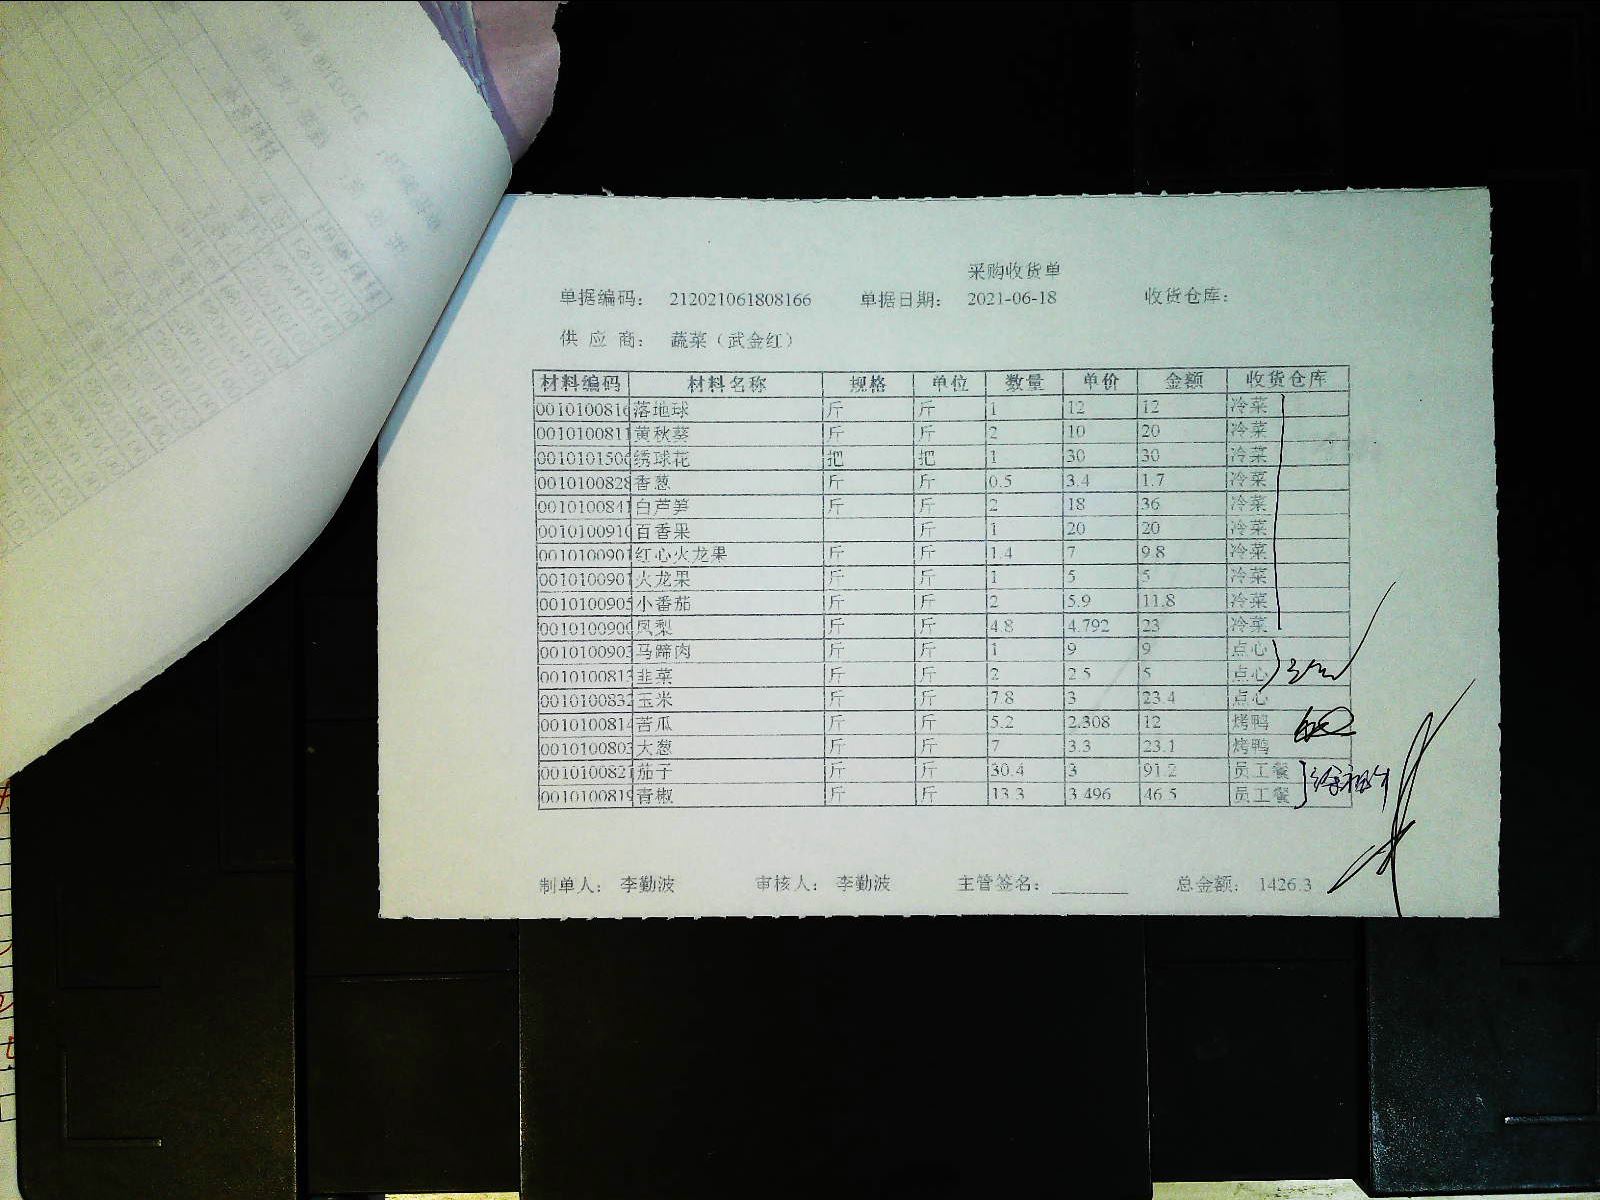 采购收货单
单据编码： 212021061808166 单据日期： 2021-06-18 收货仓库：
供 应 商： 蔬菜（武金红）
材料编码 材料名称 规格 单位 数量 单价 金额 收货仓库
0010100816 落地球 斤 斤 1 12 12 冷菜
0010100811 黄秋葵 斤 斤 2 10 20 冷菜
0010101506 绣球花 把 把 1 30 30 冷菜
0010100828 香葱 斤 斤 0.5 3.4 1.7 冷菜
0010100841 白芦笋 斤 斤 2 18 36 冷菜
0010100910 百香果 斤 1 20 20 冷菜
0010100901 红心火龙果 斤 斤 1.4 7 9.8 冷菜
0010100901 火龙果 斤 斤 1 5 5 冷菜
0010100905 小番茄 斤 斤 2 5.9 11.8 冷菜
0010100900 凤梨 斤 斤 4.8 4.792 23 冷菜
0010100903 马蹄肉 斤 斤 1 9 9 点心
0010100813 韭菜 斤 斤 2 2.5 5 点心
0010100832 玉米 斤 斤 7.8 3 23.4 点心
0010100814 苦瓜 斤 斤 5.2 2.308 12 烤鸭
0010100803 大葱 斤 斤 7 3.3 23.1 烤鸭
0010100821 茄子 斤 斤 30.4 3 91.2 员工餐
0010100819 青椒 斤 斤 13.3 3.496 46.5 员工餐
制单人： 李勤波 审核人： 李勤波 主管签名： 总金额： 1426.3